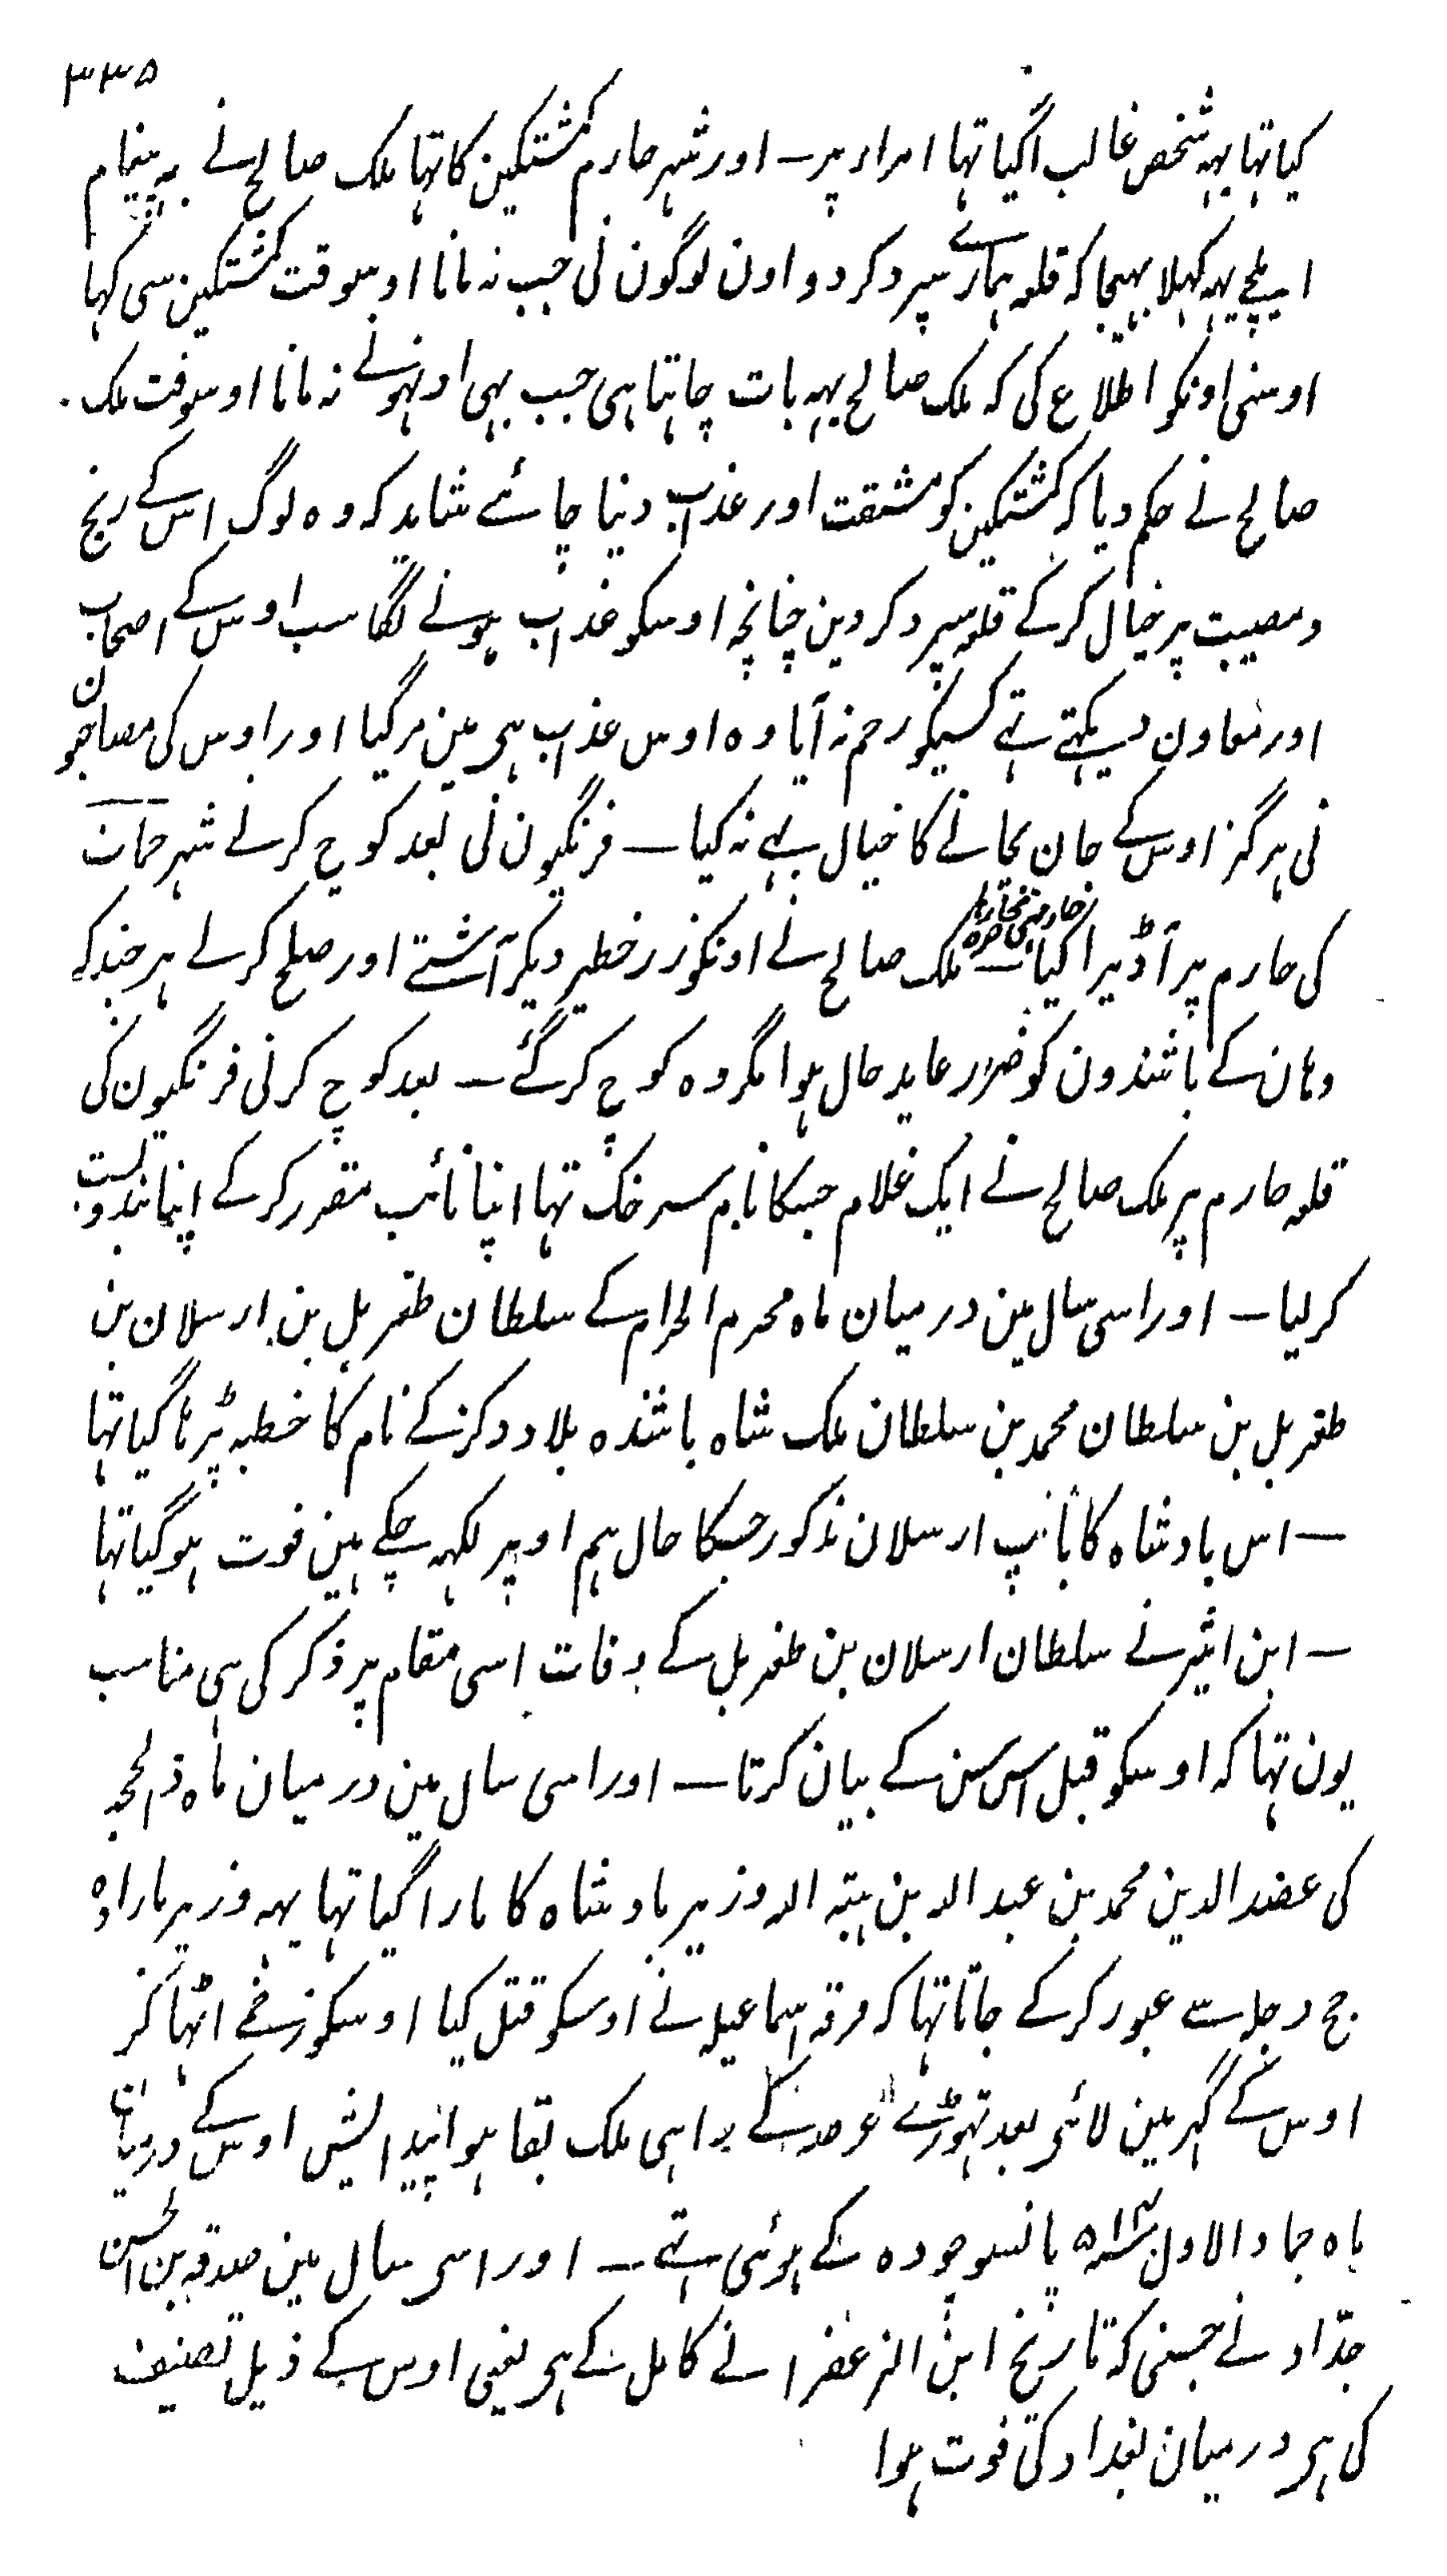 ۳۳۵
کیا تہا یہہ شخص غالب آگیا تہا امراء پر — اور شہر حارم کمشتکین کا تہا ملک صالح نے یہ پیغام
ایلچے یہہ کہلا بہیجا کہ قلعہ ہمارے سپرد کر دو اون لوگون نی جب نہ مانا اوسوقت کمشتکین سی کہا
اوسنی اونکو اطلاع کی کہ ملک صالح یہہ بات چاہتا ہی جب بہی اونہونے نہ مانا اوسوقت ملک
صالح نے حکم دیا کہ کمشتکین کو مشقت اور عذاب دینا چاہئے شاید کہ وہ لوگ اس کے رنج
ومصیبت پر خیال کر کے قلعہ سپرد کر دین چنانچہ اوسکو عذاب ہونے لگا سب اوس کے اصحاب
اور معاون دیکہتے تہے کسیکو رحم نہ آیا وہ اوس عذاب ہی مین مر گیا اور اوس کی مصاحبون
نی ہرگز اوس کے جان بچانے کا خیال بہے نہ کیا — فرنگیون نی بعد کوچ کرنے شہر حمات
کی حارم پر آ ڈیرا کیا — ملک صالح نے اونکو زر خطیر دیکر آشتے اور صلح کر لے ہر چند کہ
وہان کے باشندون کو ضرر عاید حال ہوا مگر وہ کوچ کر گئے — بعد کوچ کرنی فرنگیون کی
قلعہ حارم پر ملک صالح نے ایک غلام جسکا نام سرخک تہا اپنا نائب مقرر کر کے اپنا بندوبست
کر لیا — اور اسی سال مین درمیان ماہ محرم الحرام کے سلطان طغریل بن ارسلان بن
طغریل بن سلطان محمد بن سلطان ملک شاہ باشندہ بلاد دکز کے نام کا خطبہ پڑہا گیا تہا
— اس بادشاہ کا باپ ارسلان مذکور جسکا حال ہم اوپر لکہہ چکے ہین فوت ہو گیا تہا
— ابن اثیر نے سلطان ارسلان بن طغریل کے وفات اسی مقام پر ذکر کی ہی مناسب
یون تہا کہ اوسکو قبل اس سن کے بیان کرتا — اور اسی سال مین درمیان ماہ ذالحجہ
کی عضد الدین محمد بن عبد اللہ بن ہبتہ اللہ وزیر بادشاہ کا مارا گیا تہا یہہ وزیر بارادہ
حج دجلہ سے عبور کر کے جاتا تہا کہ فرقہ اسماعیلہ نے اوسکو قتل کیا اوسکو زخمے اٹہا کر
اوس کے گہر مین لائی بعد تہوڑے عرصہ کے راہی ملک بقا ہوا پیدایش اوس کے درمیان
ماہ جماد الاول سنہ ۵۱۴ پانسو چودہ کے ہوئی تہے — اور اسی سال مین صدقہ بن الحسین
حدّاد نے جسنی کہ تاریخ ابن الزعفرا نے کامل کے ہی یعنی اوس کے ذیل تصنیف
کی ہی درمیان بغداد کی فوت ہوا